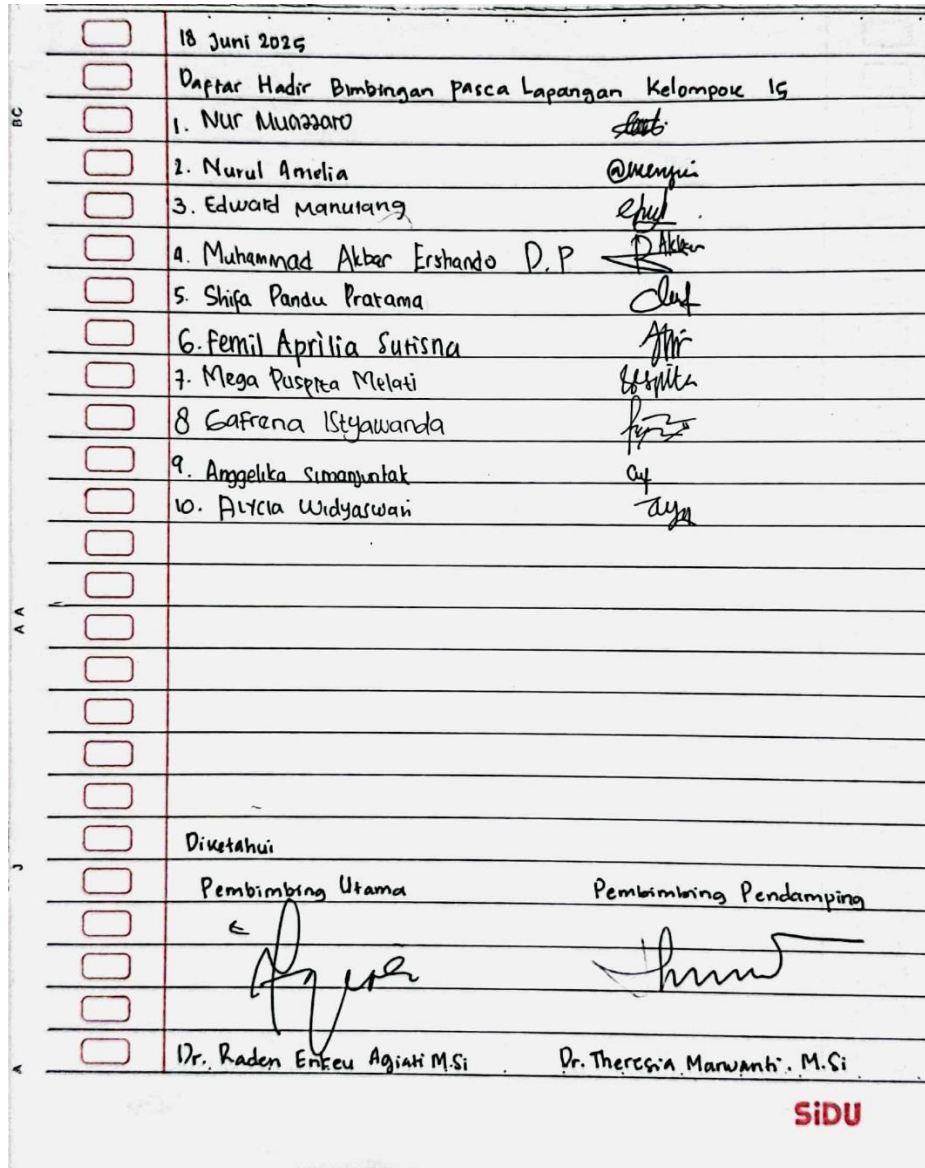 18 Juni 2025
Daftar Hadir Bimbingan pasca Lapangan Kelompok 15
1. Nur Muazzaro
2. Nurul Amelia @menyui
3. Edward Manutang
4. Muhammad Akbar Ershando D.P Akbar
5. Shifa Pandu Pratama
6. Femil Aprilia Sutisna
7. Mega Puspita Melati
8 Gafrena Istyawanda
9. Anggelika Simanjuntak
10. Alycia Widyaswari
Diketahui
Pembimbing Utama Pembimbing Pendamping
Dr. Raden Enkeu Agiati M.Si Dr. Theresia Marwanti. M.Si
SiDU
BC
A A
J
A